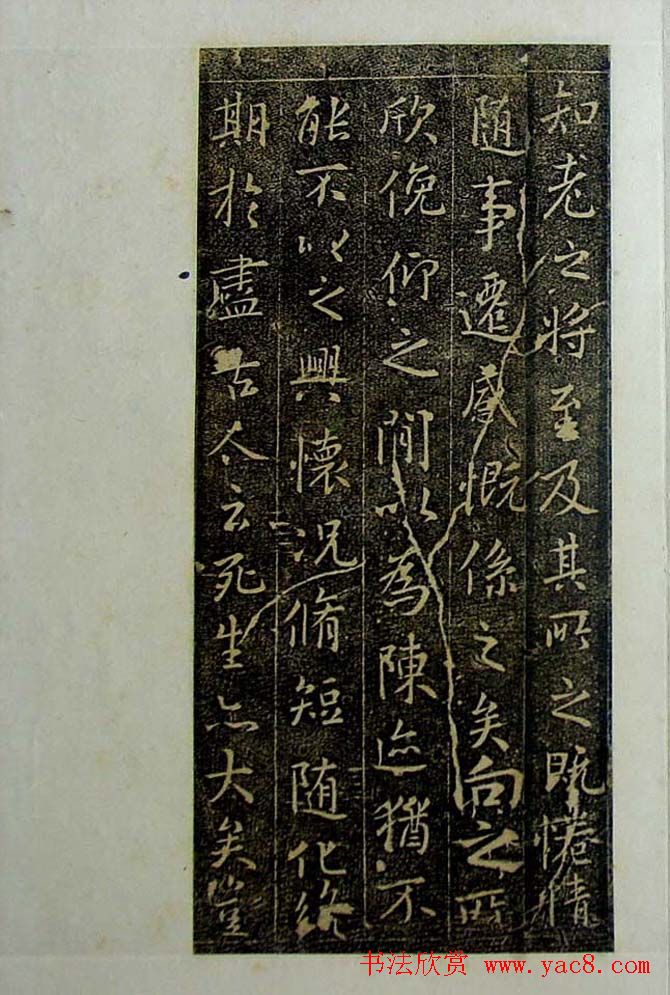 知老之将至及其所之既惓情
随事遷感慨係之矣向之所
欣俛仰之間以為陳迹猶不
能不以之興懷況脩短随化終
期於盡古人云死生亦大矣豈
书法欣赏 www.yac8.com